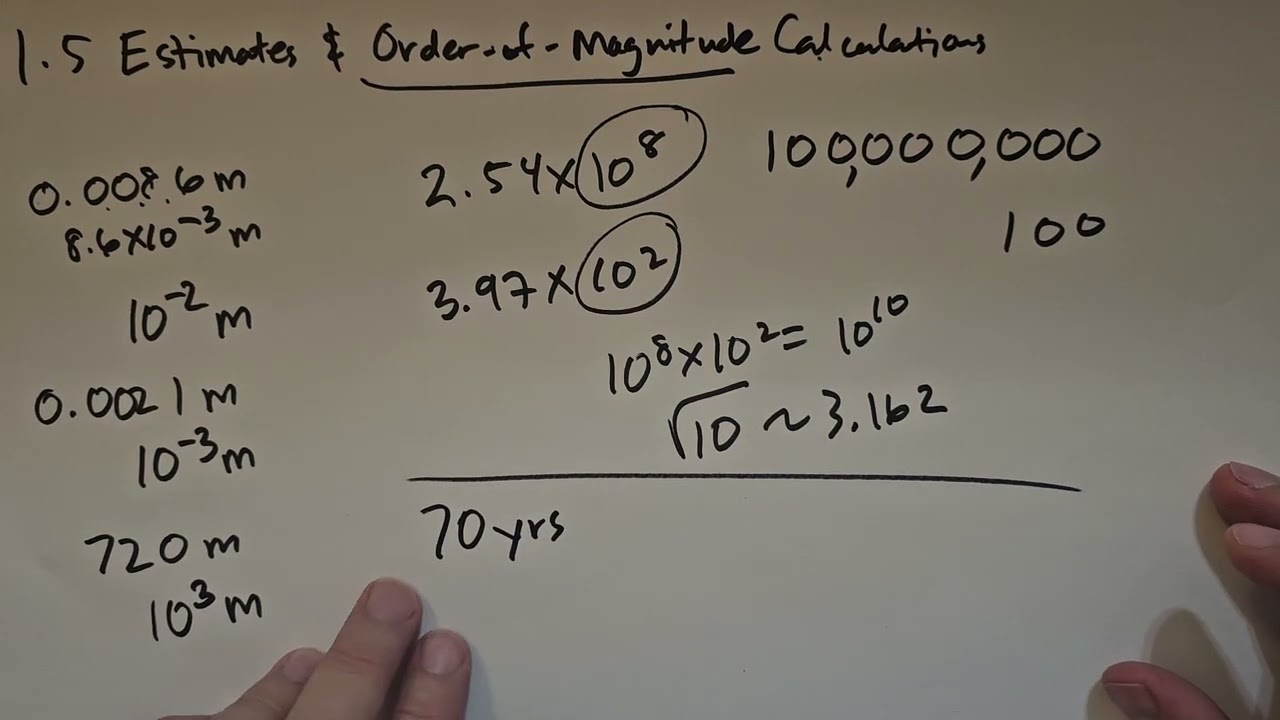 1.5 Estimates & Order-of-Magnitude Calculations
0.0086m
8.6×10⁻³m
10⁻²m
0.0021m
10⁻³m
720m
10³m
2.54×10⁸
100,000,000
3.97×10²
100
10⁸×10²=10¹⁰
√10 ~ 3.162
70yrs